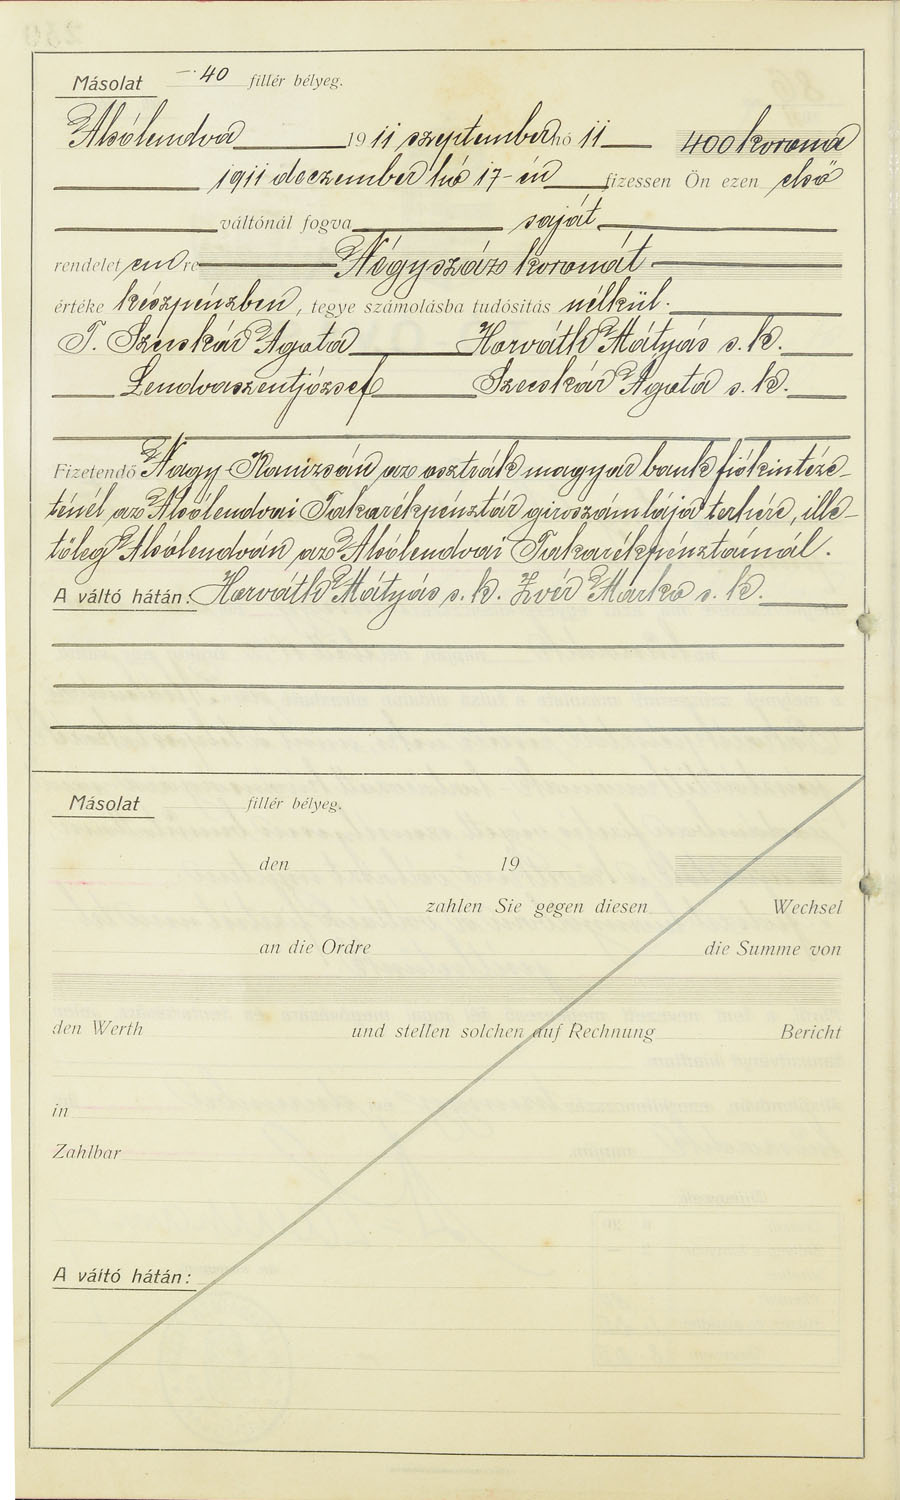 Másolat -·40 fillér bélyeg.
Alsólendva 1911 szeptember hó 11 400 korona
1911 deczember hó 17-én fizessen Ön ezen első
váltónál fogva saját
rendeletemre Négyszáz koronát
értéke készpénzben, tegye számolásba tudósítás nélkül.
T. Szecskár Ágota Horváth Mátyás s. k.
Lendvaszentjózsef Szecskár Ágota s. k.
Fizetendő Nagy-Kanizsán az osztrák magyar bank fiókintéze-
ténél az Alsólendvai Takarékpénztár giroszámlája terhére, ille-
tőleg Alsólendván az Alsólendvai Takarékpénztárnál.
A váltó hátán: Horváth Mátyás s. k. Zvér Márko s. k.
Másolat fillér bélyeg.
den 19
zahlen Sie gegen diesen Wechsel
an die Ordre die Summe von
den Werth und stellen solchen auf Rechnung Bericht
in
Zahlbar
A váltó hátán: